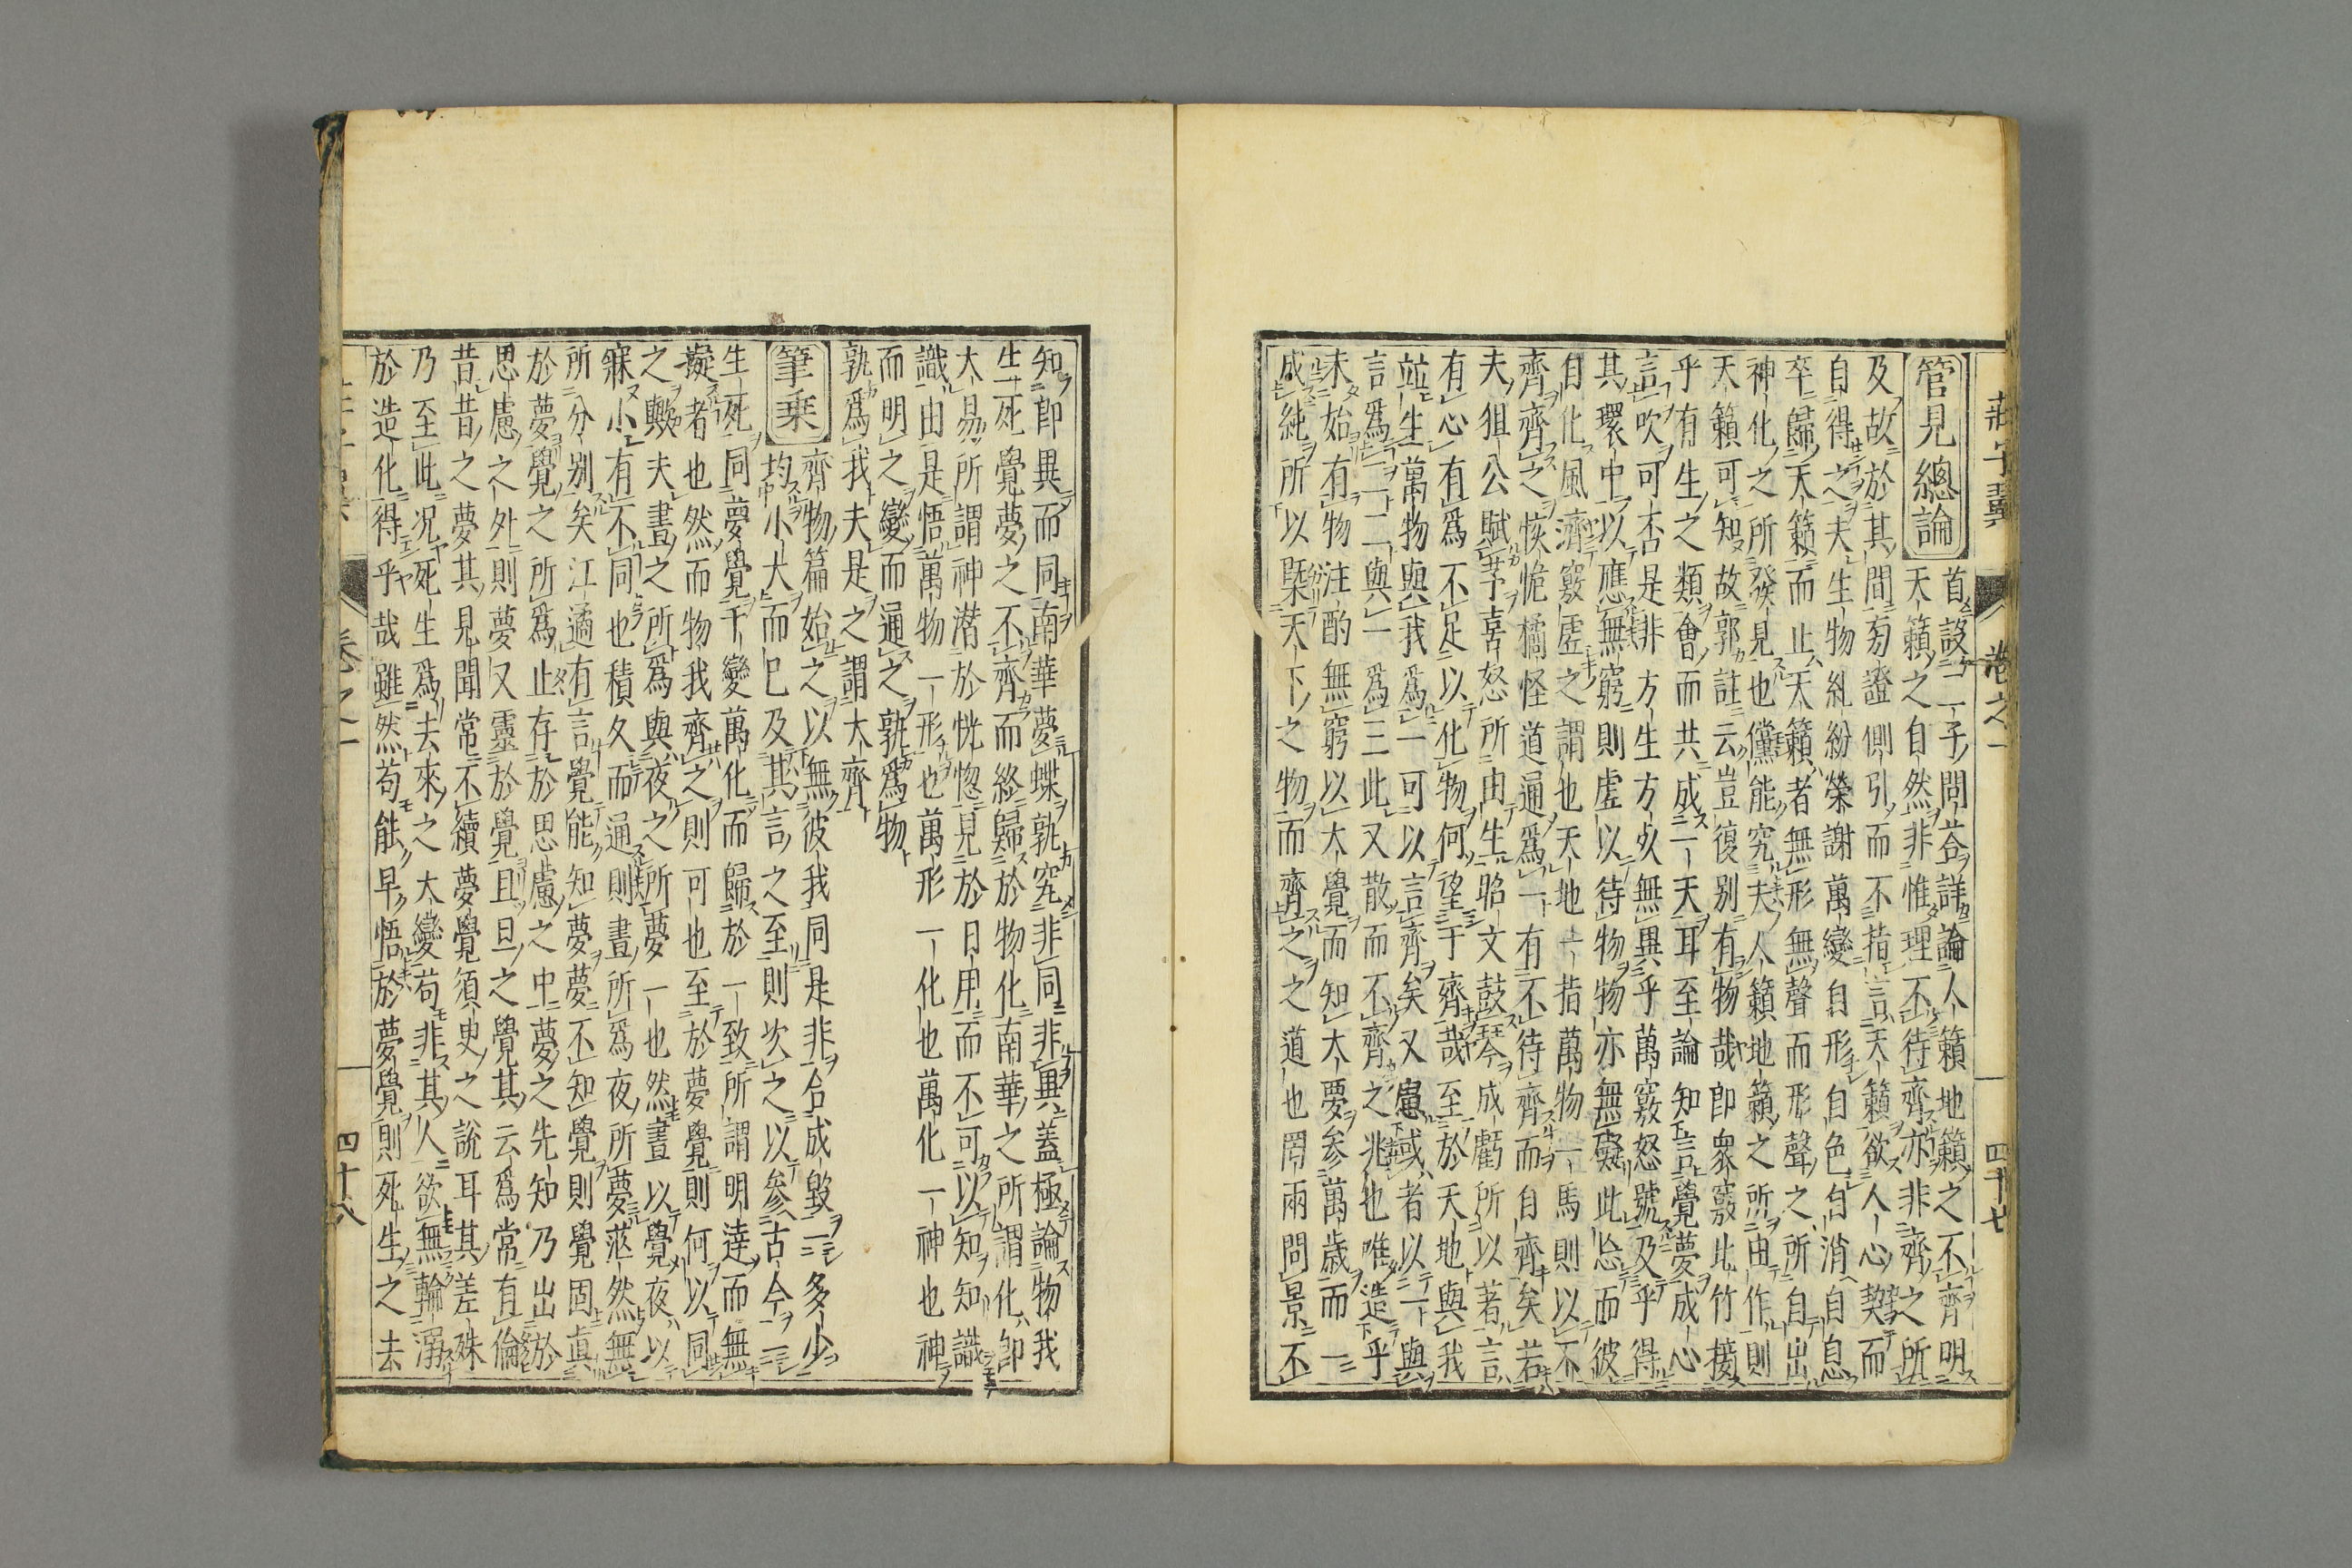 莊子翼 卷之一 四十七
管見總論 首設二子問荅詳論人籟地籟之不齊明
天籟之自然非惟理不待齊亦非齊之所
及故於其間旁證側引而不指言天籟欲人心契而
自得之夫生物糺紛榮謝萬變自形自色自消自息
卒歸天籟而止天籟者無形無聲而形聲之所自出
神化之所發見也儻能究夫人籟地籟之所由作則
天籟可知故郭註云豈復别有物哉即衆竅此竹接
乎有生之類會而共成一天耳至論知言覺夢成心
言吹可否是非方生方死無異乎萬竅怒號及乎得
其環中以應無窮則虛以待物物亦無礙此忘而彼
自化風濟竅虛之謂也天地一指萬物一馬則以不
齊齊之恢恑憰怪道通爲一有不待齊而自齊矣若
夫狙公賦芧喜怒所由生昭文鼓琴成虧所以著言
有心有爲不足以化物何望于齊哉至於天地與我
竝生萬物與我爲一可以言齊矣又慮或者以一與
言爲二二與一爲三此又散而不齊之兆也唯造乎
未始有物注酌無窮以大覺而知大夢参萬歲而一
成純所以槩天下之物而齊之之道也罔兩問景不
知即異而同南華夢蝶孰究非同非異蓋極論物我
生死覺夢之不齊而終歸於物化南華之所謂化即
大易所謂神潜於恍惚見於日用而不可以知知識
識由是悟萬物一形也萬形一化也萬化一神也神
而明之變而通之孰爲物
孰爲我夫是之謂大齊
筆乗 齊物篇始之以無彼我同是非合成毀一多少
均小大而已及其言之至則次之以參古今一
生死同夢覺千變萬化而歸於一致所謂明達而無
礙者也然而物我齊之則可也至於夢覺則何以同
之歟夫晝之所爲與夜之所夢一也然晝以覺夜以
寐小有不同也積久而通則晝所爲夜所夢茫然無
所分别矣江遹有言覺能知夢夢不知覺則覺固眞
於夢覺之所爲止存於思慮之中夢之先知乃出於
思慮之外則夢又靈於覺且旦之覺其云爲常有倫
昔昔之夢其見聞常不續夢覺須臾之說耳其差殊
乃至此况死生爲去來之大變苟非其人欲無輪溺
於造化得乎哉雖然苟能早悟於夢覺則死生之去
卷之一 四十八